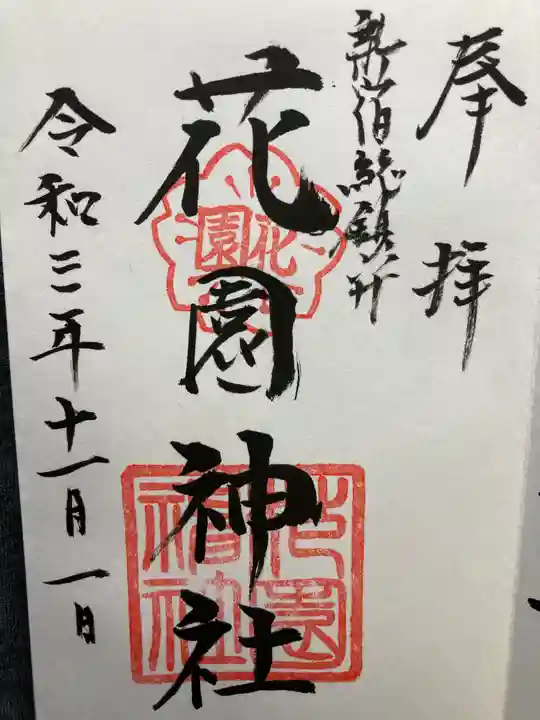 奉拝
新宿総鎮守
花園神社
花園
花園神社
令和三年十一月一日